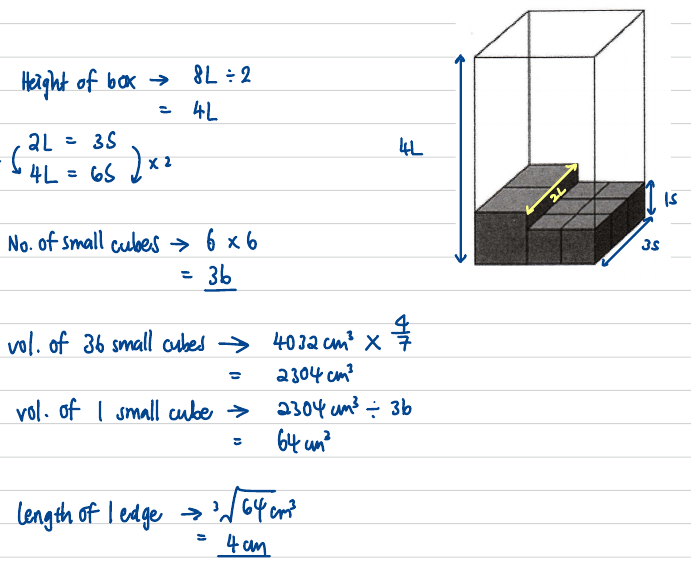 Height of box → 8L ÷ 2
= 4L
2L = 3S
4L = 6S
× 2
No. of small cubes → 6 × 6
= 36
vol. of 36 small cubes → 4032 cm³ × 4/7
= 2304 cm³
vol. of 1 small cube → 2304 cm³ ÷ 36
= 64 cm³
length of 1 edge → ³√64 cm³
= 4 cm
4L
2L
1S
3S